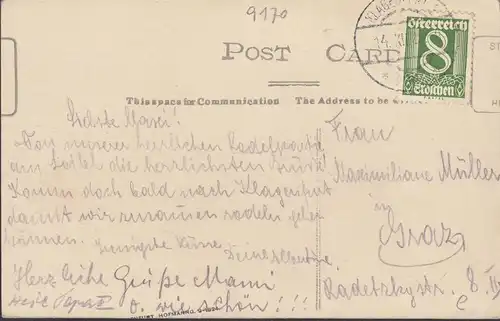 9170
POST CARD
KLAGENFURT
Österreich
8
Groschen
This space for Communication
The Address to be
Liebste Marie!
Von unserer herrlichen Rodelpartie
am Loibl die herzlichsten Grüße
Komm doch bald nach Klagenfurt
damit wir zusammen rodeln gehen
können. Innigste Küsse
Deine
Herzliche Grüße Mami
O. wie schön!!!
Frau
Maximiliane Müller
in
Graz
Radetzkystr. 8